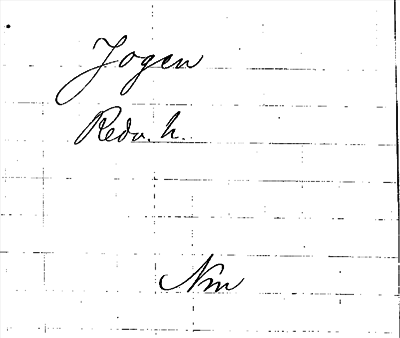 Jogen
Redv. h.
Nm